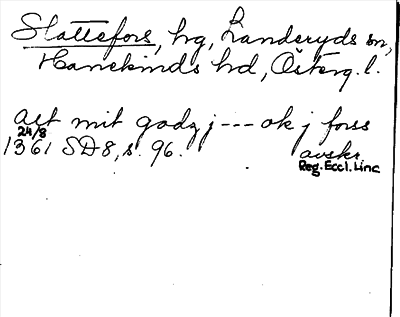 Slattefors, hg, Landeryds sn,
Hanekinds hd, Österg. l.
alt mit godz j --- ok j forss
24/8
1361 SD 8, s. 96. avskr.
Reg. Eccl. Linc